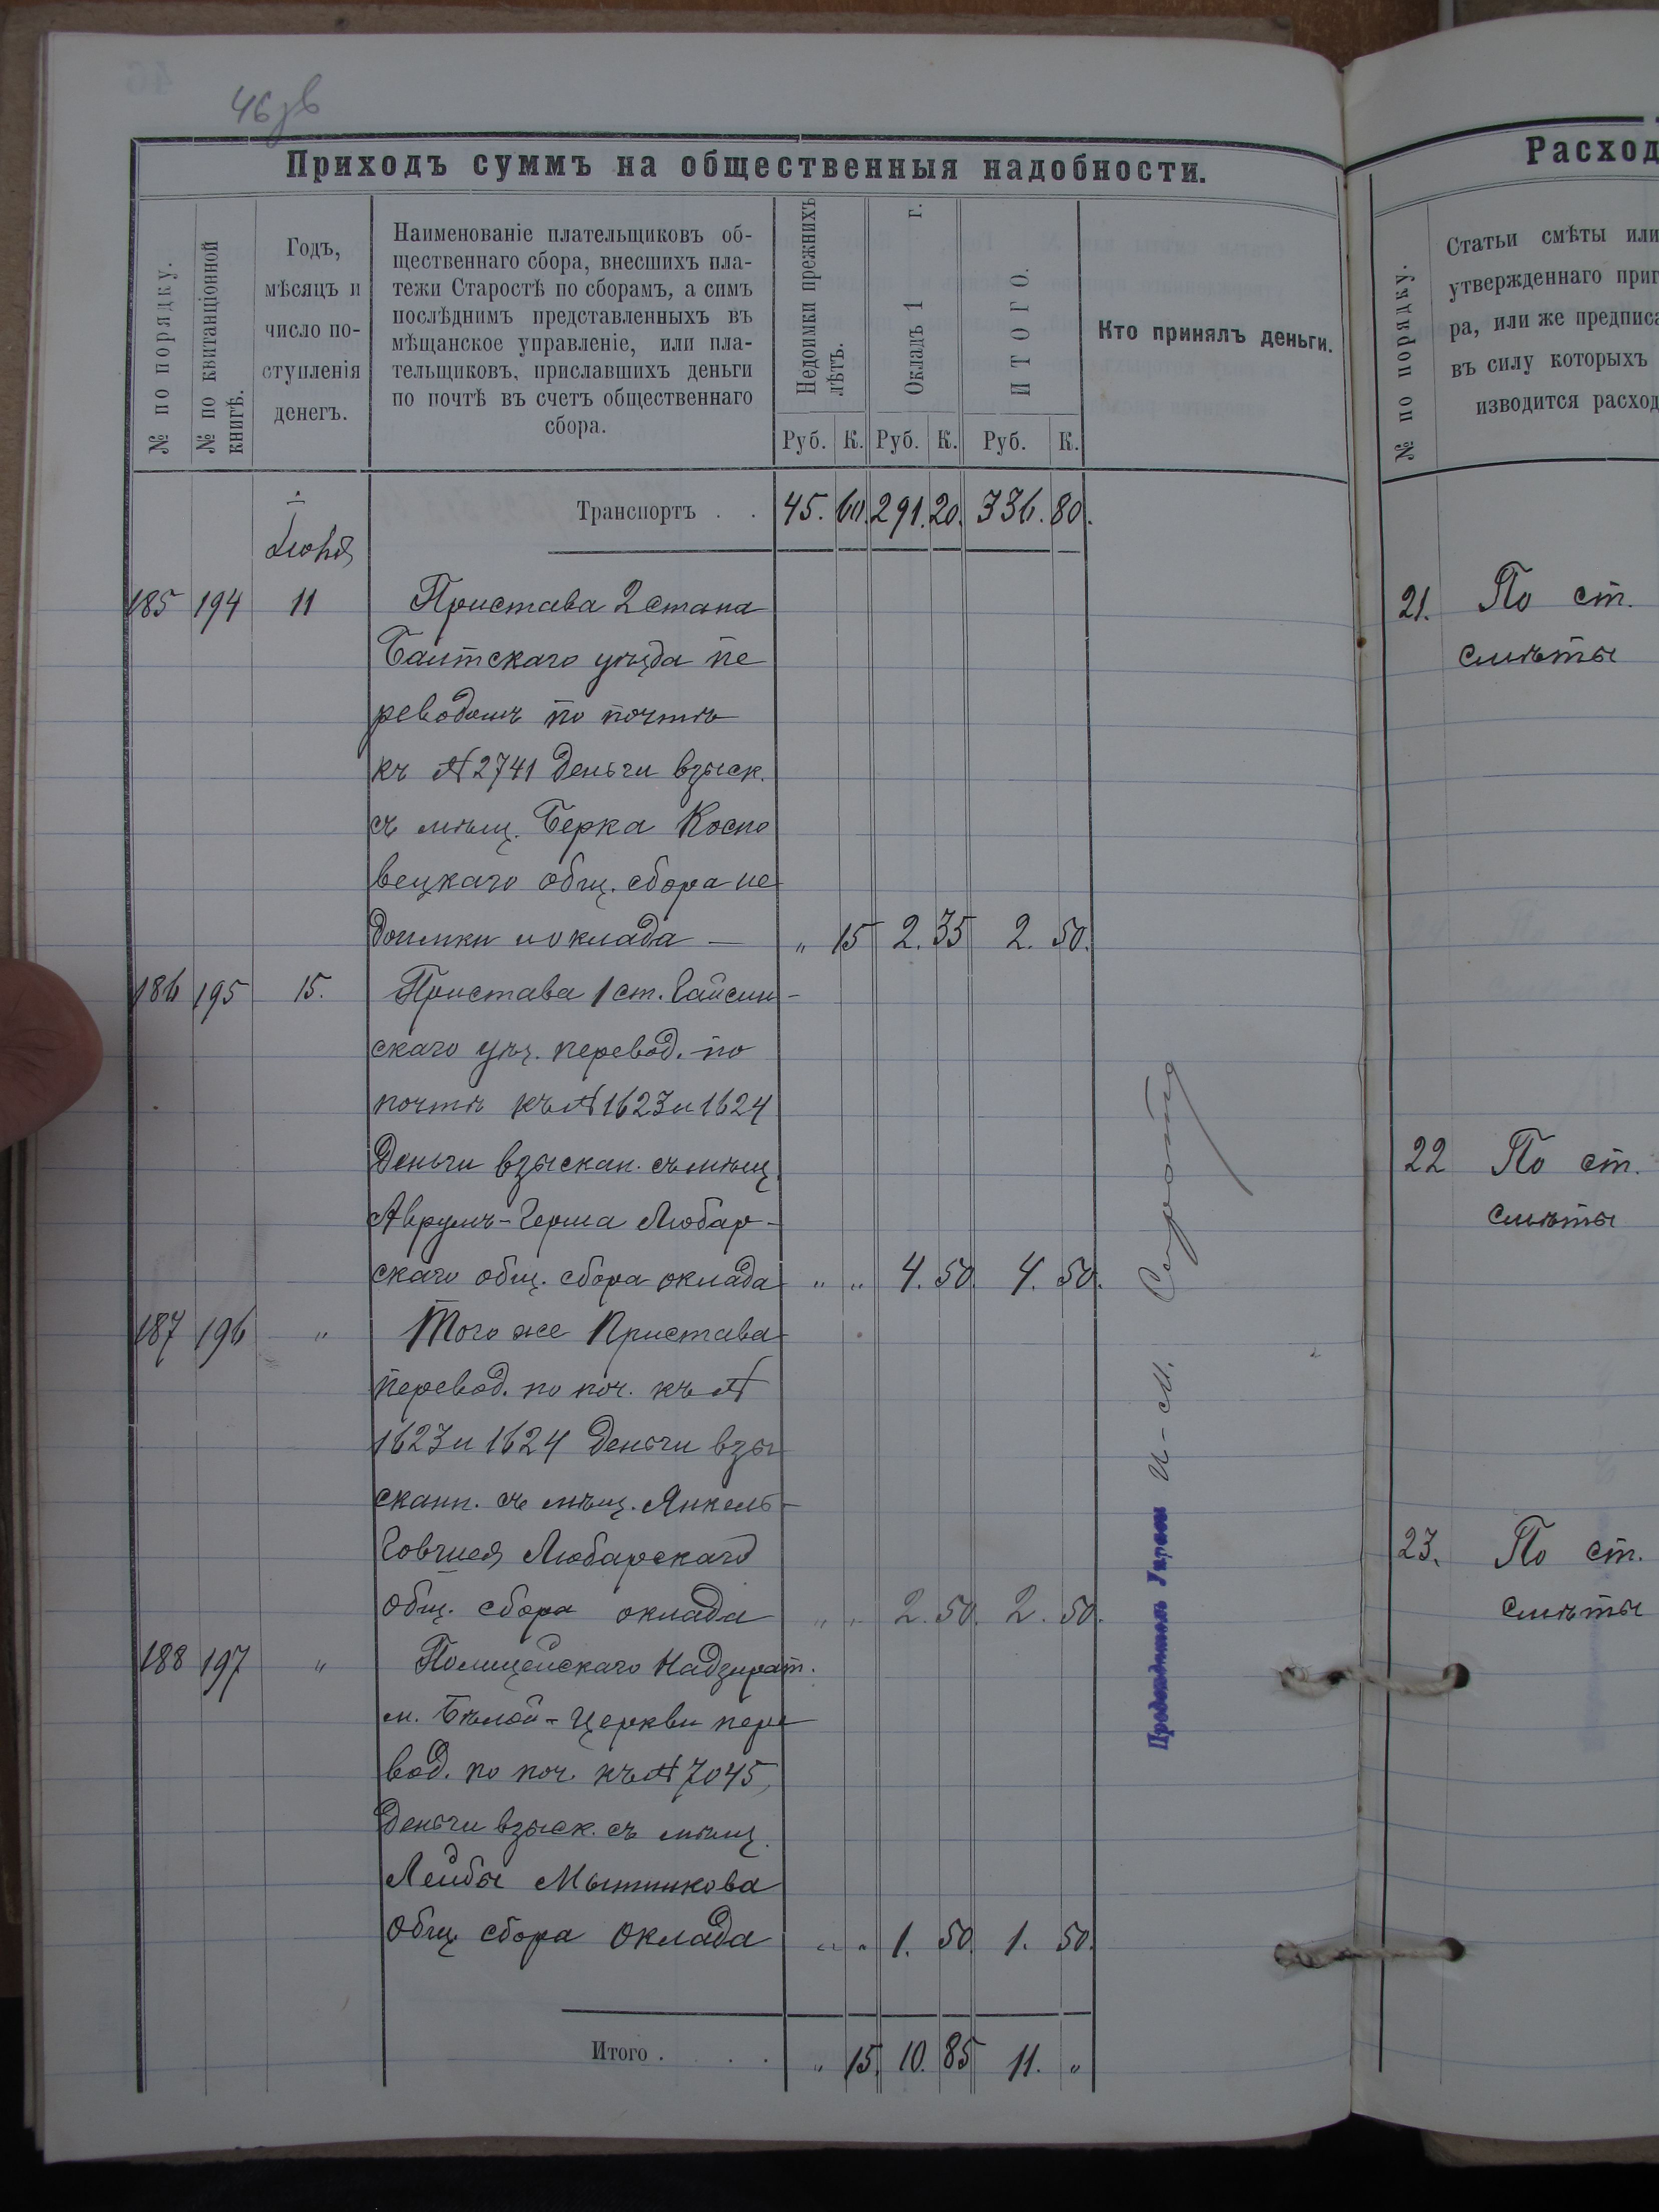 46 зв
Приходъ суммъ на общественныя надобности.
№ по порядку.
№ по квитанціонной
книгѣ.
Годъ,
мѣсяцъ и
число по-
ступленія
денегъ.
Наименованіе плательщиковъ об-
щественнаго сбора, внесшихъ пла-
тежи Старостѣ по сборамъ, а симъ
послѣднимъ представленныхъ въ
мѣщанское управленіе, или пла-
тельщиковъ, приславшихъ деньги
по почтѣ въ счетъ общественнаго
сбора.
Недоимки прежнихъ
лѣтъ.
Окладъ 1 г.
ИТОГО.
Кто принялъ деньги.
Руб. К. Руб. К. Руб. К.
Транспортъ . . 45. 60. 291. 20. 336. 80.
Іюня
185 194 11 Пристава 2 стана
Балтскаго уѣзда пе
реводомъ по почтѣ
къ № 2741 деньги взыск.
съ мѣщ. Берка Косно
вецкаго общ. сбора не
доимки и оклада — „ 15 2. 35 2. 50.
186 195 15. Пристава 1 ст. Гайсин-
скаго уѣз. перевод. по
почтѣ къ № 1623 и 1624
деньги взыскан. съ мѣщ.
Аврумъ-Герша Любар-
скаго общ. сбора оклада „ „ 4. 50. 4. 50.
187 196 „ Того же Пристава
перевод. по поч. къ №
1623 и 1624 деньги взы
сканн. съ мѣщ. Янкель-
Говшея Любарскаго
общ. сбора оклада „ „ 2. 50. 2. 50.
188 197 „ Полицейскаго Надзират.
м. Бѣлой-Церкви пере
вод. по поч. къ № 7045,
деньги взыск. съ мѣщ.
Лейбы Мытникова
общ. сбора оклада „ „ 1. 50. 1. 50.
Итого . . . „ 15. 10. 85 11. „
И-М. Сирота
Расход
№ по порядку.
Статьи смѣты или
утвержденнаго приг
ра, или же предписа
въ силу которыхъ
изводится расход
21. По ст.
смѣты
22 По ст.
смѣты
23. По ст.
смѣты